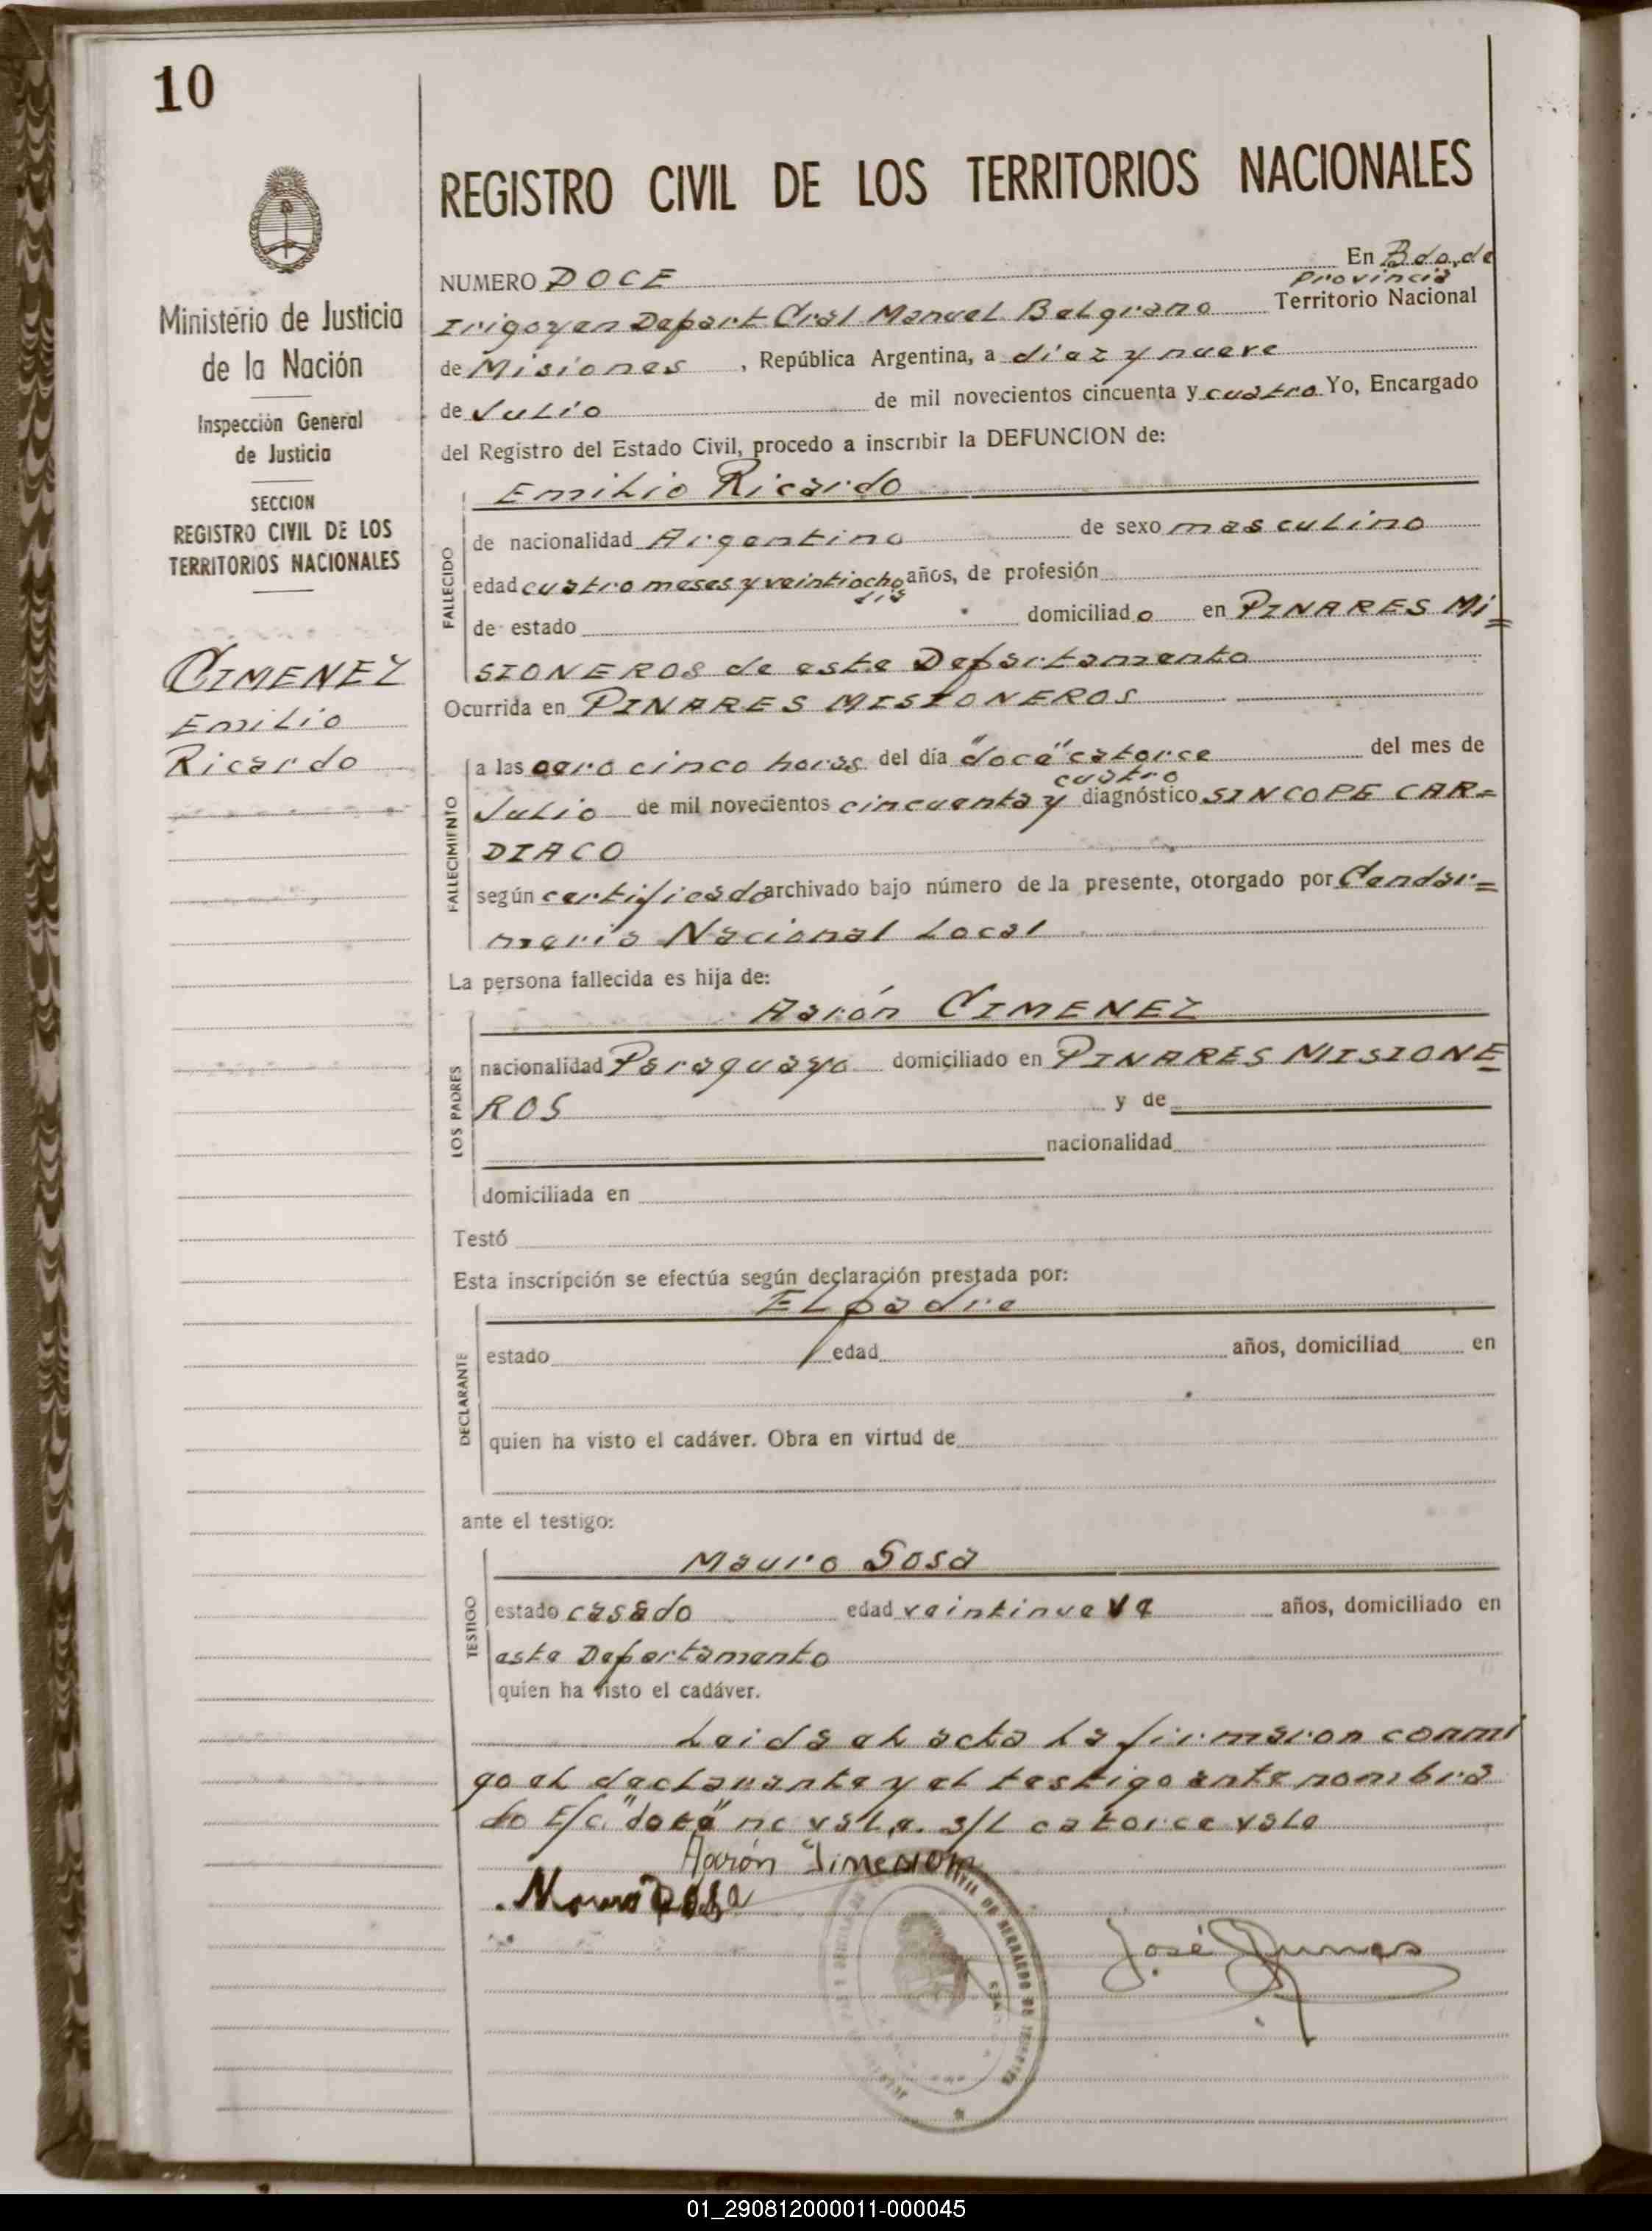 10
REGISTRO CIVIL DE LOS TERRITORIOS NACIONALES
Ministerio de Justicia
de la Nación
Inspección General
de Justicia
SECCION
REGISTRO CIVIL DE LOS
TERRITORIOS NACIONALES
GIMENEZ
Emilio
Ricardo
NUMERO DOCE En Bdo. de
provincia
Irigoyen Depart Gral Manuel Belgrano Territorio Nacional
de Misiones, República Argentina, a diez y nueve
de Julio de mil novecientos cincuenta y cuatro Yo, Encargado
del Registro del Estado Civil, procedo a inscribir la DEFUNCION de:
Emilio Ricardo
FALLECIDO
de nacionalidad Argentino de sexo masculino
edad cuatro meses y veintiocho años, de profesión
dis
de estado domiciliado en PINARES MI=
SIONEROS de este Departamento
Ocurrida en PINARES MISIONEROS
FALLECIMIENTO
a las cero cinco horas del día "doce" catorce del mes de
cuatro
Julio de mil novecientos cincuenta y diagnóstico SINCOPE CAR=
DIACO
según certificado archivado bajo número de la presente, otorgado por Gendar=
meria Nacional Local
La persona fallecida es hija de:
Aarón GIMENEZ
LOS PADRES
nacionalidad Paraguayo domiciliado en PINARES MISIONE
ROS y de
nacionalidad
domiciliada en
Testó
Esta inscripción se efectúa según declaración prestada por:
El padre
DECLARANTE
estado edad años, domiciliad en
quien ha visto el cadáver. Obra en virtud de
ante el testigo:
Mauro Sosa
TESTIGO
estado casado edad veintinueve años, domiciliado en
este Departamento
quien ha visto el cadáver.
Leida el acta la firmaron conmi
go el declarante y el testigo ante nombra
do E/c. "doce" no vale. s/L catorce vale
Aarón
Mauro Sosa
José
01_290812000011-000045